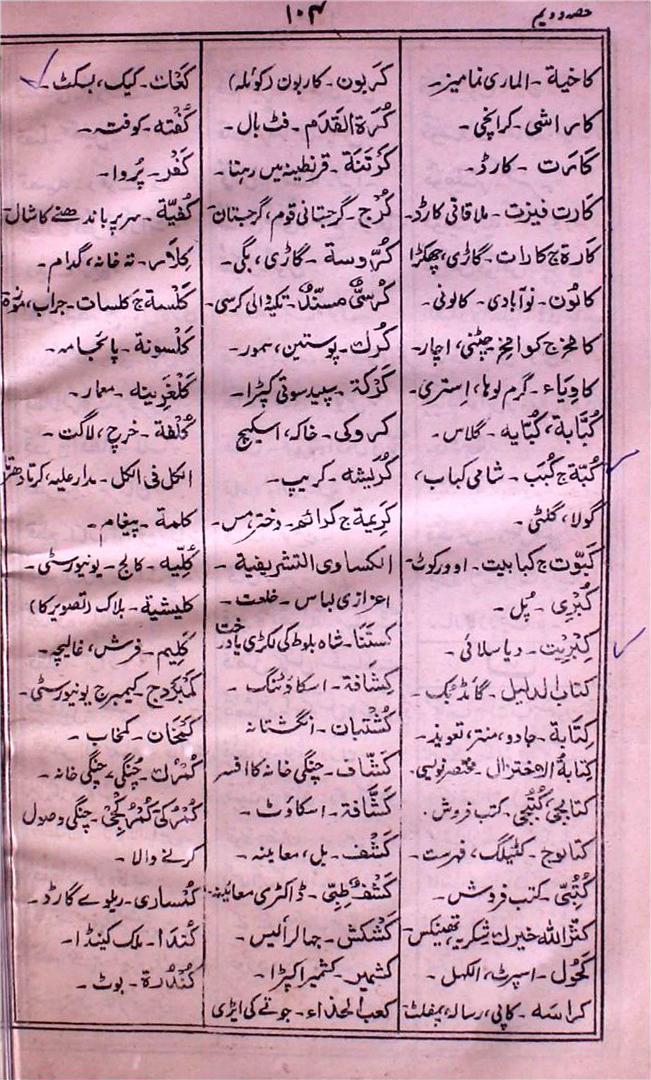 حصہ دویم
۱۰۴
كاخية ۔ الماری نما میز ۔
كاراشی ۔ کراچی ۔
كَارت ۔ کارڈ ۔
كارت فيزت ۔ ملاقاتی کارڈ ۔
كارة ج كارات ۔ گاڑی، چھکڑا
كالُون ۔ نوآبادی ۔ کالونی ۔
كامخ ج كوامخ ۔ چٹنی، اچار ۔
كاوِيَاء ۔ گرم لوہا، اِستری ۔
كُبَّابة، كُبَّايه ۔ گلاس ۔
كُبّة ج كُبَب ۔ شامی کباب،
گولا، گلٹی ۔
كَبّوت ج كبابيت ۔ اوورکوٹ ۔
كُبْرِی ۔ پُل ۔
كِبْرِيْت ۔ دیا سلائی ۔
كتاب الدليل ۔ گائڈ بک ۔
كِتَابة ۔ جادو، منتر، تعویذ ۔
كتابةُ الاختزال ۔ مختصر نویسی ۔
كتابجی، كُتُبجی ۔ کتب فروش ۔
كتالوج ۔ کٹیلگ، فہرست ۔
كُتُبِّی ۔ کتب فروش ۔
كثّر الله خيرك ۔ شکریہ، تھینکس ۔
كحُول ۔ اسپرٹ، الکحل ۔
كراسه ۔ کاپی، رسالہ، پمفلٹ ۔
كربون ۔ کاربون (کوئلہ)
كُرَةُ القَدَم ۔ فٹ بال ۔
كَرْتَنَة ۔ قرنطینہ میں رہنا ۔
كُرْج ۔ گرجستانی قوم، گرجستان ۔
كرُّوسة ۔ گاڑی، بگی ۔
كُرْسیٌّ مسنّدٌ ۔ تکیہ والی کرسی ۔
كُرك ۔ پوستین، سمور ۔
كركة ۔ سپید سوتی کپڑا ۔
كروكی ۔ خاکہ، اسکیچ
كُريشه ۔ کریپ ۔
كريمة ج كرائم ۔ دختر، مس ۔
الكساوی التشريفية ۔
اعزازی لباس ۔ خلعت ۔
كستَنَا ۔ شاہ بلوط کی لکڑی یا درخت
كِشَافة ۔ اسکاؤٹنگ ۔
كُشْتبان ۔ انگشتانہ
كشّاف ۔ چنگی خانہ کا افسر
كَشَّافة ۔ اسکاؤٹ ۔
كَشْف ۔ بل، معاینہ ۔
كَشْفٌ طِبّی ۔ ڈاکٹری معائینہ ۔
كَشْكش ۔ جھالر، لیس ۔
كشمير ۔ کشمیرا کپڑا ۔
كعب الحذاء ۔ جوتے کی ایڑی
كَعَات ۔ کیک، بسکٹ ۔
كُفْته ۔ کوفتہ ۔
كَفْر ۔ پُروا ۔
كُفّيّة ۔ سر پر باندھنے کا شال
كِلاّر ۔ تہ خانہ، گدام ۔
كَلْسة ج كلسات ۔ جراب، موزہ
كَلْسونة ۔ پائجامہ ۔
كَلْغَرِينه ۔ معمار ۔
كُلْفة ۔ خرچ، لاگت ۔
الكل فی الكل ۔ مدار علیہ، کرتا دھرتا
كلمة ۔ پیغام ۔
كُلّيّه ۔ کالج ۔ یونیورسٹی ۔
كليشية ۔ بلاک (تصویر کا)
كليم ۔ فرش، غالیچہ ۔
كَمْبَردج ۔ کیمبرج یونیورسٹی ۔
كَمْخَان ۔ کمخاب ۔
كُمْرك ۔ چنگی، چنگی خانہ ۔
كُمْرُكی كُمْرُكْجی ۔ چنگی وصول
کرنے والا ۔
كُمْساری ۔ ریلوے گارڈ ۔
كَنَدَا ۔ ملک کینڈا ۔
كُنْدُرة ۔ بوٹ ۔